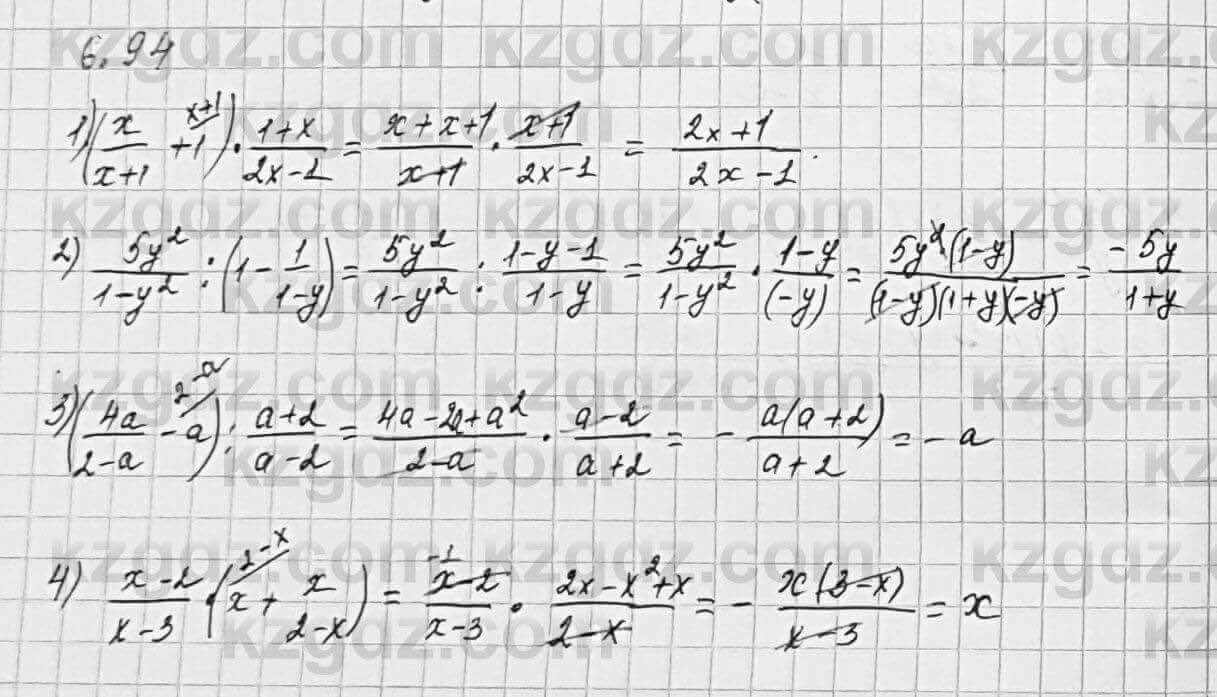 6.94
1) (x/(x+1) + 1^(x+1)) · (1+x)/(2x-1) = (x+x+1)/(x+1) · (x+1)/(2x-1) = (2x+1)/(2x-1).
2) 5y²/(1-y²) : (1 - 1/(1-y)) = 5y²/(1-y²) : (1-y-1)/(1-y) = 5y²/(1-y²) · (1-y)/(-y) = 5y²(1-y)/((1-y)(1+y)(-y)) = -5y/(1+y)
3) (4a/(2-a) - a^(2-a)) : (a+2)/(a-2) = (4a-2a+a²)/(2-a) · (a-2)/(a+2) = - a(a+2)/(a+2) = -a
4) (x-2)/(x-3) · (x^(2-x) + x/(2-x)) = (x-2)^(-1)/(x-3) · (2x-x²+x)/(2-x) = - x(3-x)/(x-3) = x
kzgdz.com